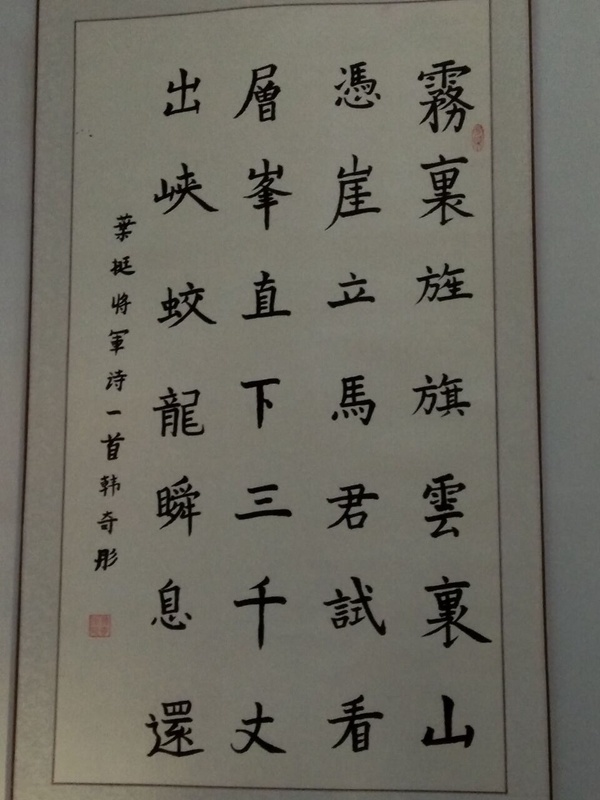 霧裏旌旗雲裏山
憑崖立馬君試看
層峯直下三千丈
出峽蛟龍瞬息還
葉挺將軍诗一首韩奇彤